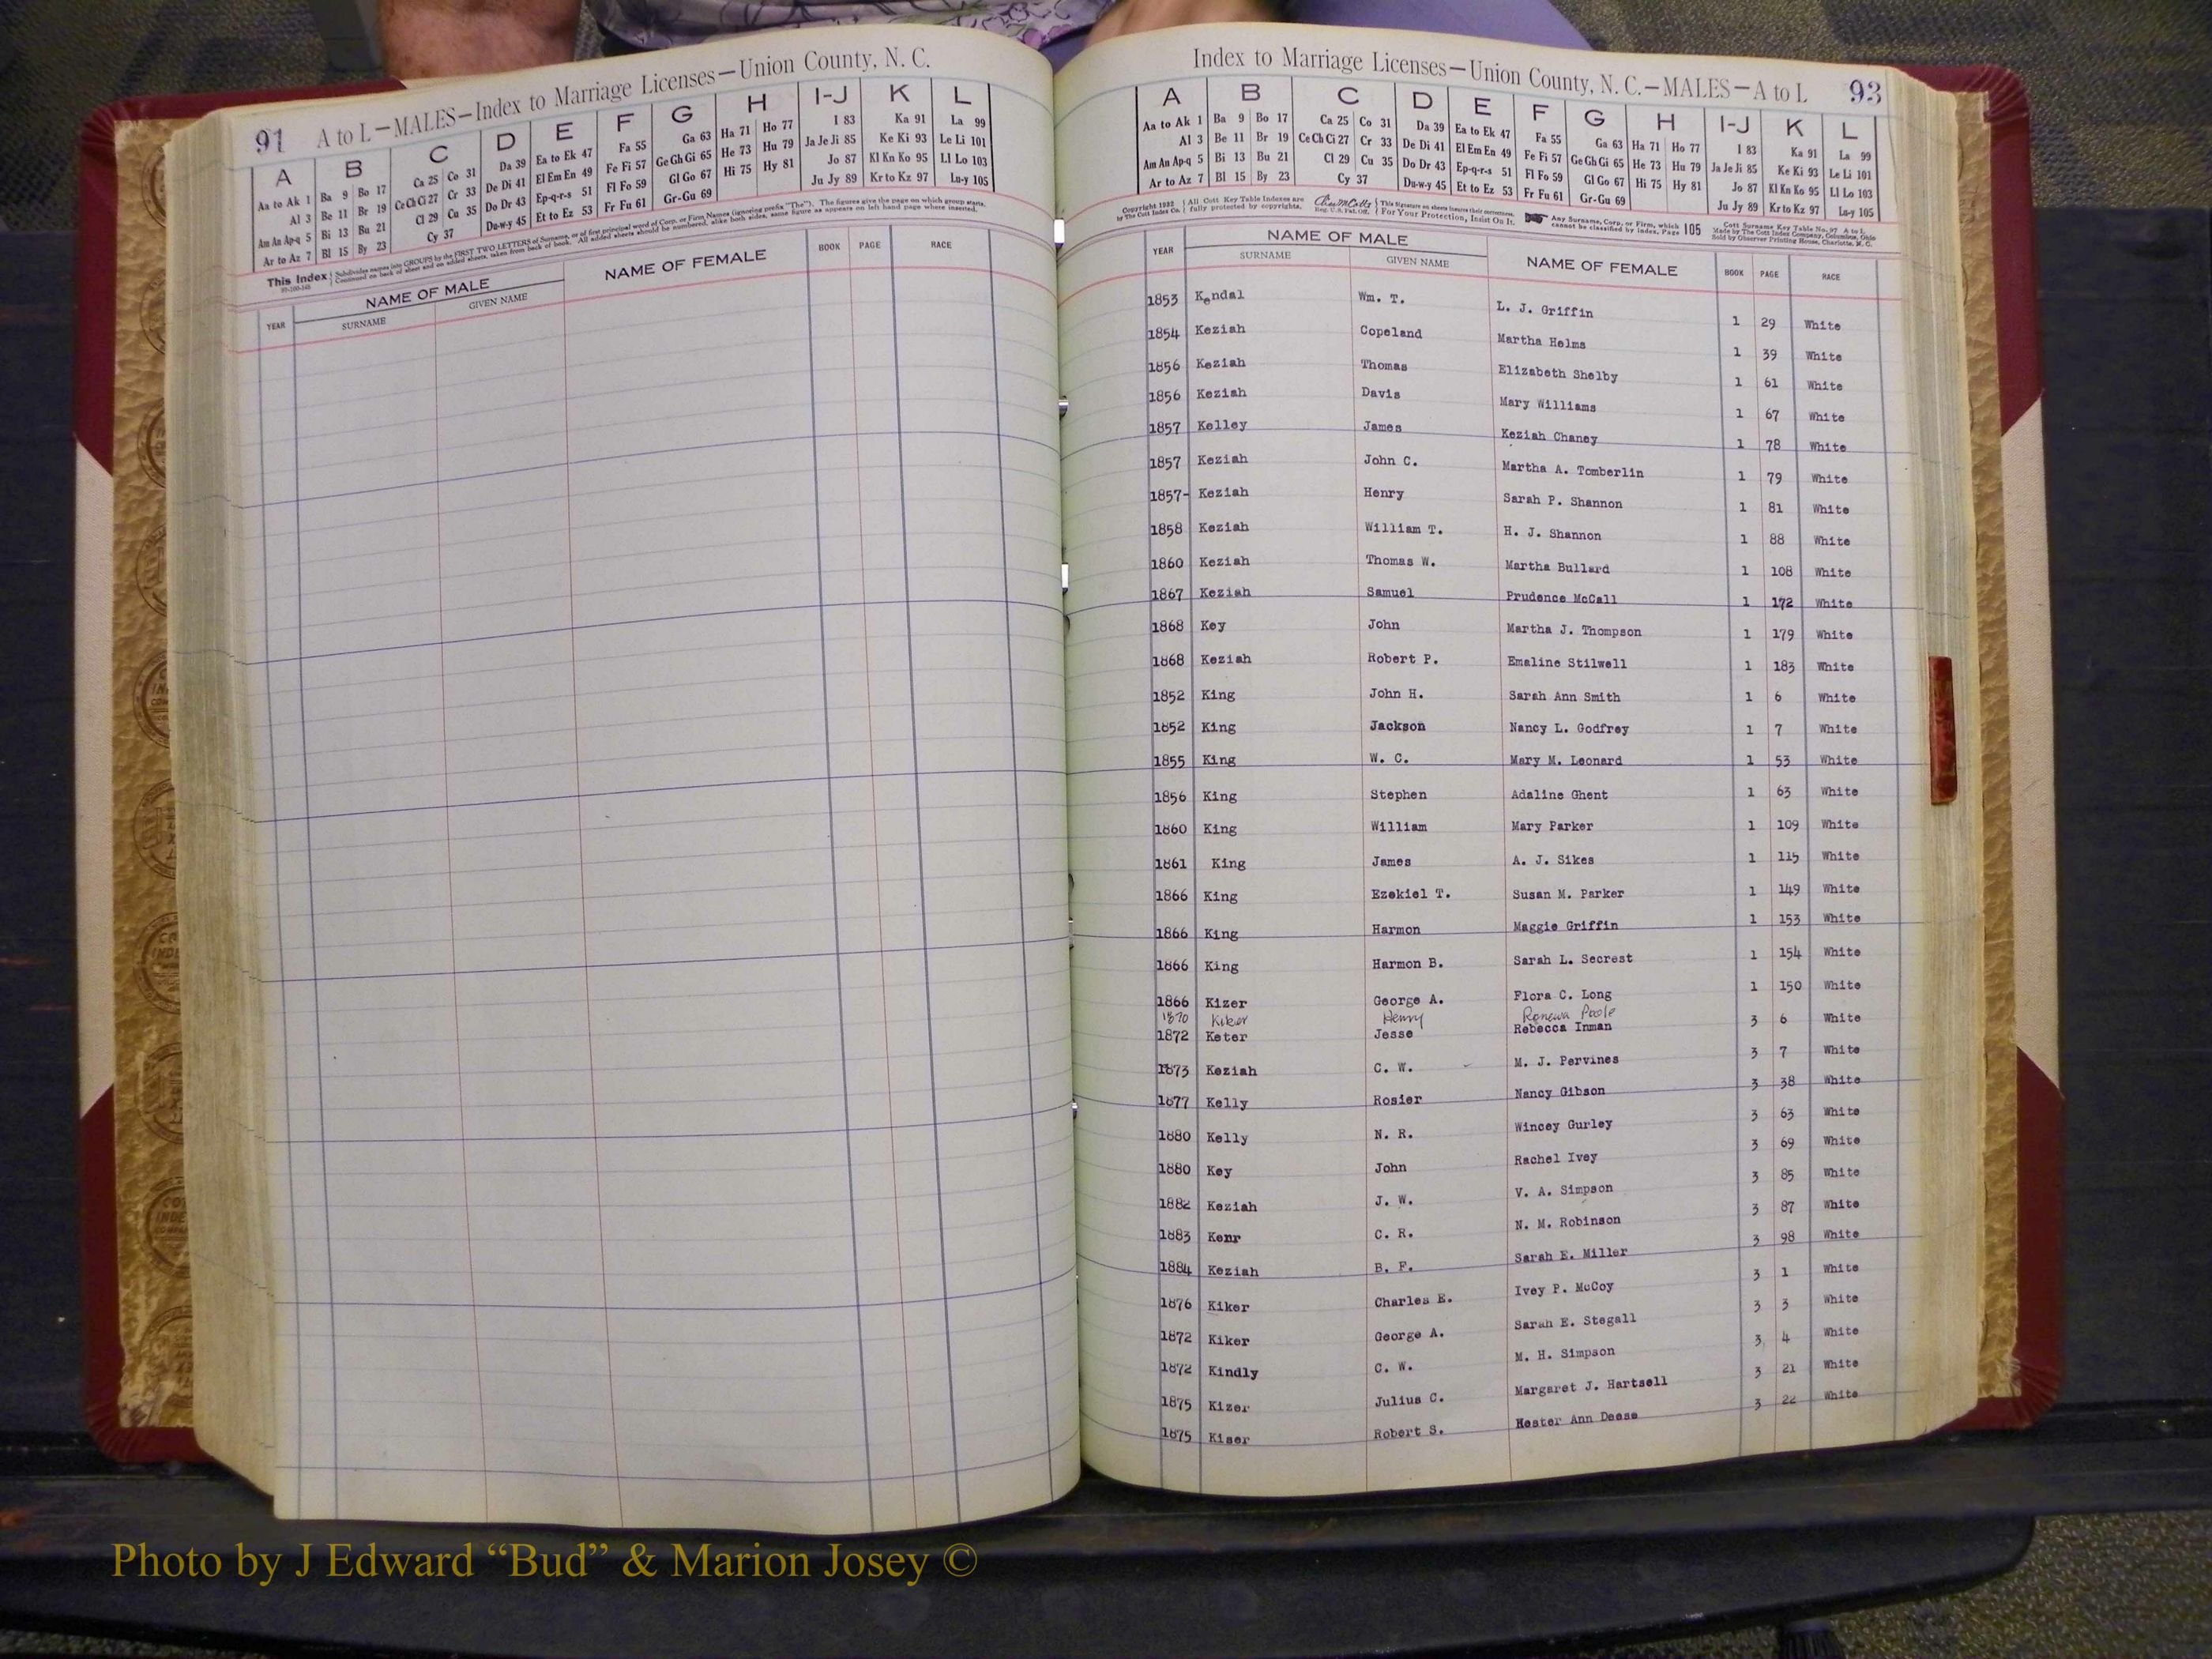 91 A to L—MALES—Index to Marriage Licenses—Union County, N. C.
A B C D E F G H I-J K L
Aa to Ak 1 Ba 9 Bo 17 Ca 25 Co 31 Da 39 Ea to Ek 47 Fa 55 Ga 63 Ha 71 Ho 77 I 83 Ka 91 La 99
Al 3 Be 11 Br 19 Ce Ch Ci 27 Cr 33 De Di 41 El Em En 49 Fe Fi 57 Ge Gh Gi 65 He 73 Hu 79 Ja Je Ji 85 Ke Ki 93 Le Li 101
Am An Ap-q 5 Bi 13 Bu 21 Cl 29 Cu 35 Do Dr 43 Ep-q-r-s 51 Fl Fo 59 Gl Go 67 Hi 75 Hy 81 Jo 87 Kl Kn Ko 95 Ll Lo 103
Ar to Az 7 Bl 15 By 23 Cy 37 Du-w-y 45 Et to Ez 53 Fr Fu 61 Gr-Gu 69 Ju Jy 89 Kr to Kz 97 Lu-y 105
This Index Subdivides names into GROUPS by the FIRST TWO LETTERS of Surname, or of first principal word of Corp. or Firm Names (ignoring prefix "The"). The figures give the page on which group starts.
Continued on back of sheet and on added sheets, taken from back of book. All added sheets should be numbered, alike both sides, same figure as appears on left hand page where inserted.
YEAR NAME OF MALE NAME OF FEMALE BOOK PAGE RACE
SURNAME GIVEN NAME
Index to Marriage Licenses—Union County, N. C.—MALES—A to L 93
A B C D E F G H I-J K L
Aa to Ak 1 Ba 9 Bo 17 Ca 25 Co 31 Da 39 Ea to Ek 47 Fa 55 Ga 63 Ha 71 Ho 77 I 83 Ka 91 La 99
Al 3 Be 11 Br 19 Ce Ch Ci 27 Cr 33 De Di 41 El Em En 49 Fe Fi 57 Ge Gh Gi 65 He 73 Hu 79 Ja Je Ji 85 Ke Ki 93 Le Li 101
Am An Ap-q 5 Bi 13 Bu 21 Cl 29 Cu 35 Do Dr 43 Ep-q-r-s 51 Fl Fo 59 Gl Go 67 Hi 75 Hy 81 Jo 87 Kl Kn Ko 95 Ll Lo 103
Ar to Az 7 Bl 15 By 23 Cy 37 Du-w-y 45 Et to Ez 53 Fr Fu 61 Gr-Gu 69 Ju Jy 89 Kr to Kz 97 Lu-y 105
Copyright 1932 All Cott Key Table Indexes are This Signature on sheets insures their correctness. Any Surname, Corp. or Firm, which Cott Surname Key Table No. 97 A to L
by The Cott Index Co. fully protected by copyrights. Reg. U.S. Pat. Off. For Your Protection, Insist On It. cannot be classified by Index, Page 105 Made by The Cott Index Company, Columbus, Ohio
Sold by Observer Printing House, Charlotte, N. C.
YEAR NAME OF MALE NAME OF FEMALE BOOK PAGE RACE
SURNAME GIVEN NAME
1853 Kendal Wm. T. L. J. Griffin 1 29 White
1854 Keziah Copeland Martha Helms 1 39 White
1856 Keziah Thomas Elizabeth Shelby 1 61 White
1856 Keziah Davis Mary Williams 1 67 White
1857 Kelley James Keziah Chaney 1 78 White
1857 Keziah John C. Martha A. Tomberlin 1 79 White
1857- Keziah Henry Sarah P. Shannon 1 81 White
1858 Keziah William T. H. J. Shannon 1 88 White
1860 Keziah Thomas W. Martha Bullard 1 108 White
1867 Keziah Samuel Prudence McCall 1 172 White
1868 Key John Martha J. Thompson 1 179 White
1868 Keziah Robert P. Emaline Stilwell 1 183 White
1852 King John H. Sarah Ann Smith 1 6 White
1852 King Jackson Nancy L. Godfrey 1 7 White
1855 King W. C. Mary M. Leonard 1 53 White
1856 King Stephen Adaline Ghent 1 63 White
1860 King William Mary Parker 1 109 White
1861 King James A. J. Sikes 1 115 White
1866 King Ezekiel T. Susan M. Parker 1 149 White
1866 King Harmon Maggie Griffin 1 153 White
1866 King Harmon B. Sarah L. Secrest 1 154 White
1866 Kizer George A. Flora C. Long 1 150 White
1870 Kiker Henry Renewa Poole
1872 Keter Jesse Rebecca Inman 3 6 White
1873 Keziah C. W. M. J. Pervines 3 7 White
1877 Kelly Rosier Nancy Gibson 3 38 White
1880 Kelly N. R. Wincey Gurley 3 63 White
1880 Key John Rachel Ivey 3 69 White
1882 Keziah J. W. V. A. Simpson 3 85 White
1883 Kenr C. R. N. M. Robinson 3 87 White
1884 Keziah B. F. Sarah E. Miller 3 98 White
1876 Kiker Charles E. Ivey P. McCoy 3 1 White
1872 Kiker George A. Sarah E. Stegall 3 3 White
1872 Kindly C. W. M. H. Simpson 3 4 White
1875 Kizer Julius C. Margaret J. Hartsell 3 21 White
1875 Kiser Robert S. Hester Ann Deese 3 22 White
Photo by J Edward “Bud” & Marion Josey ©